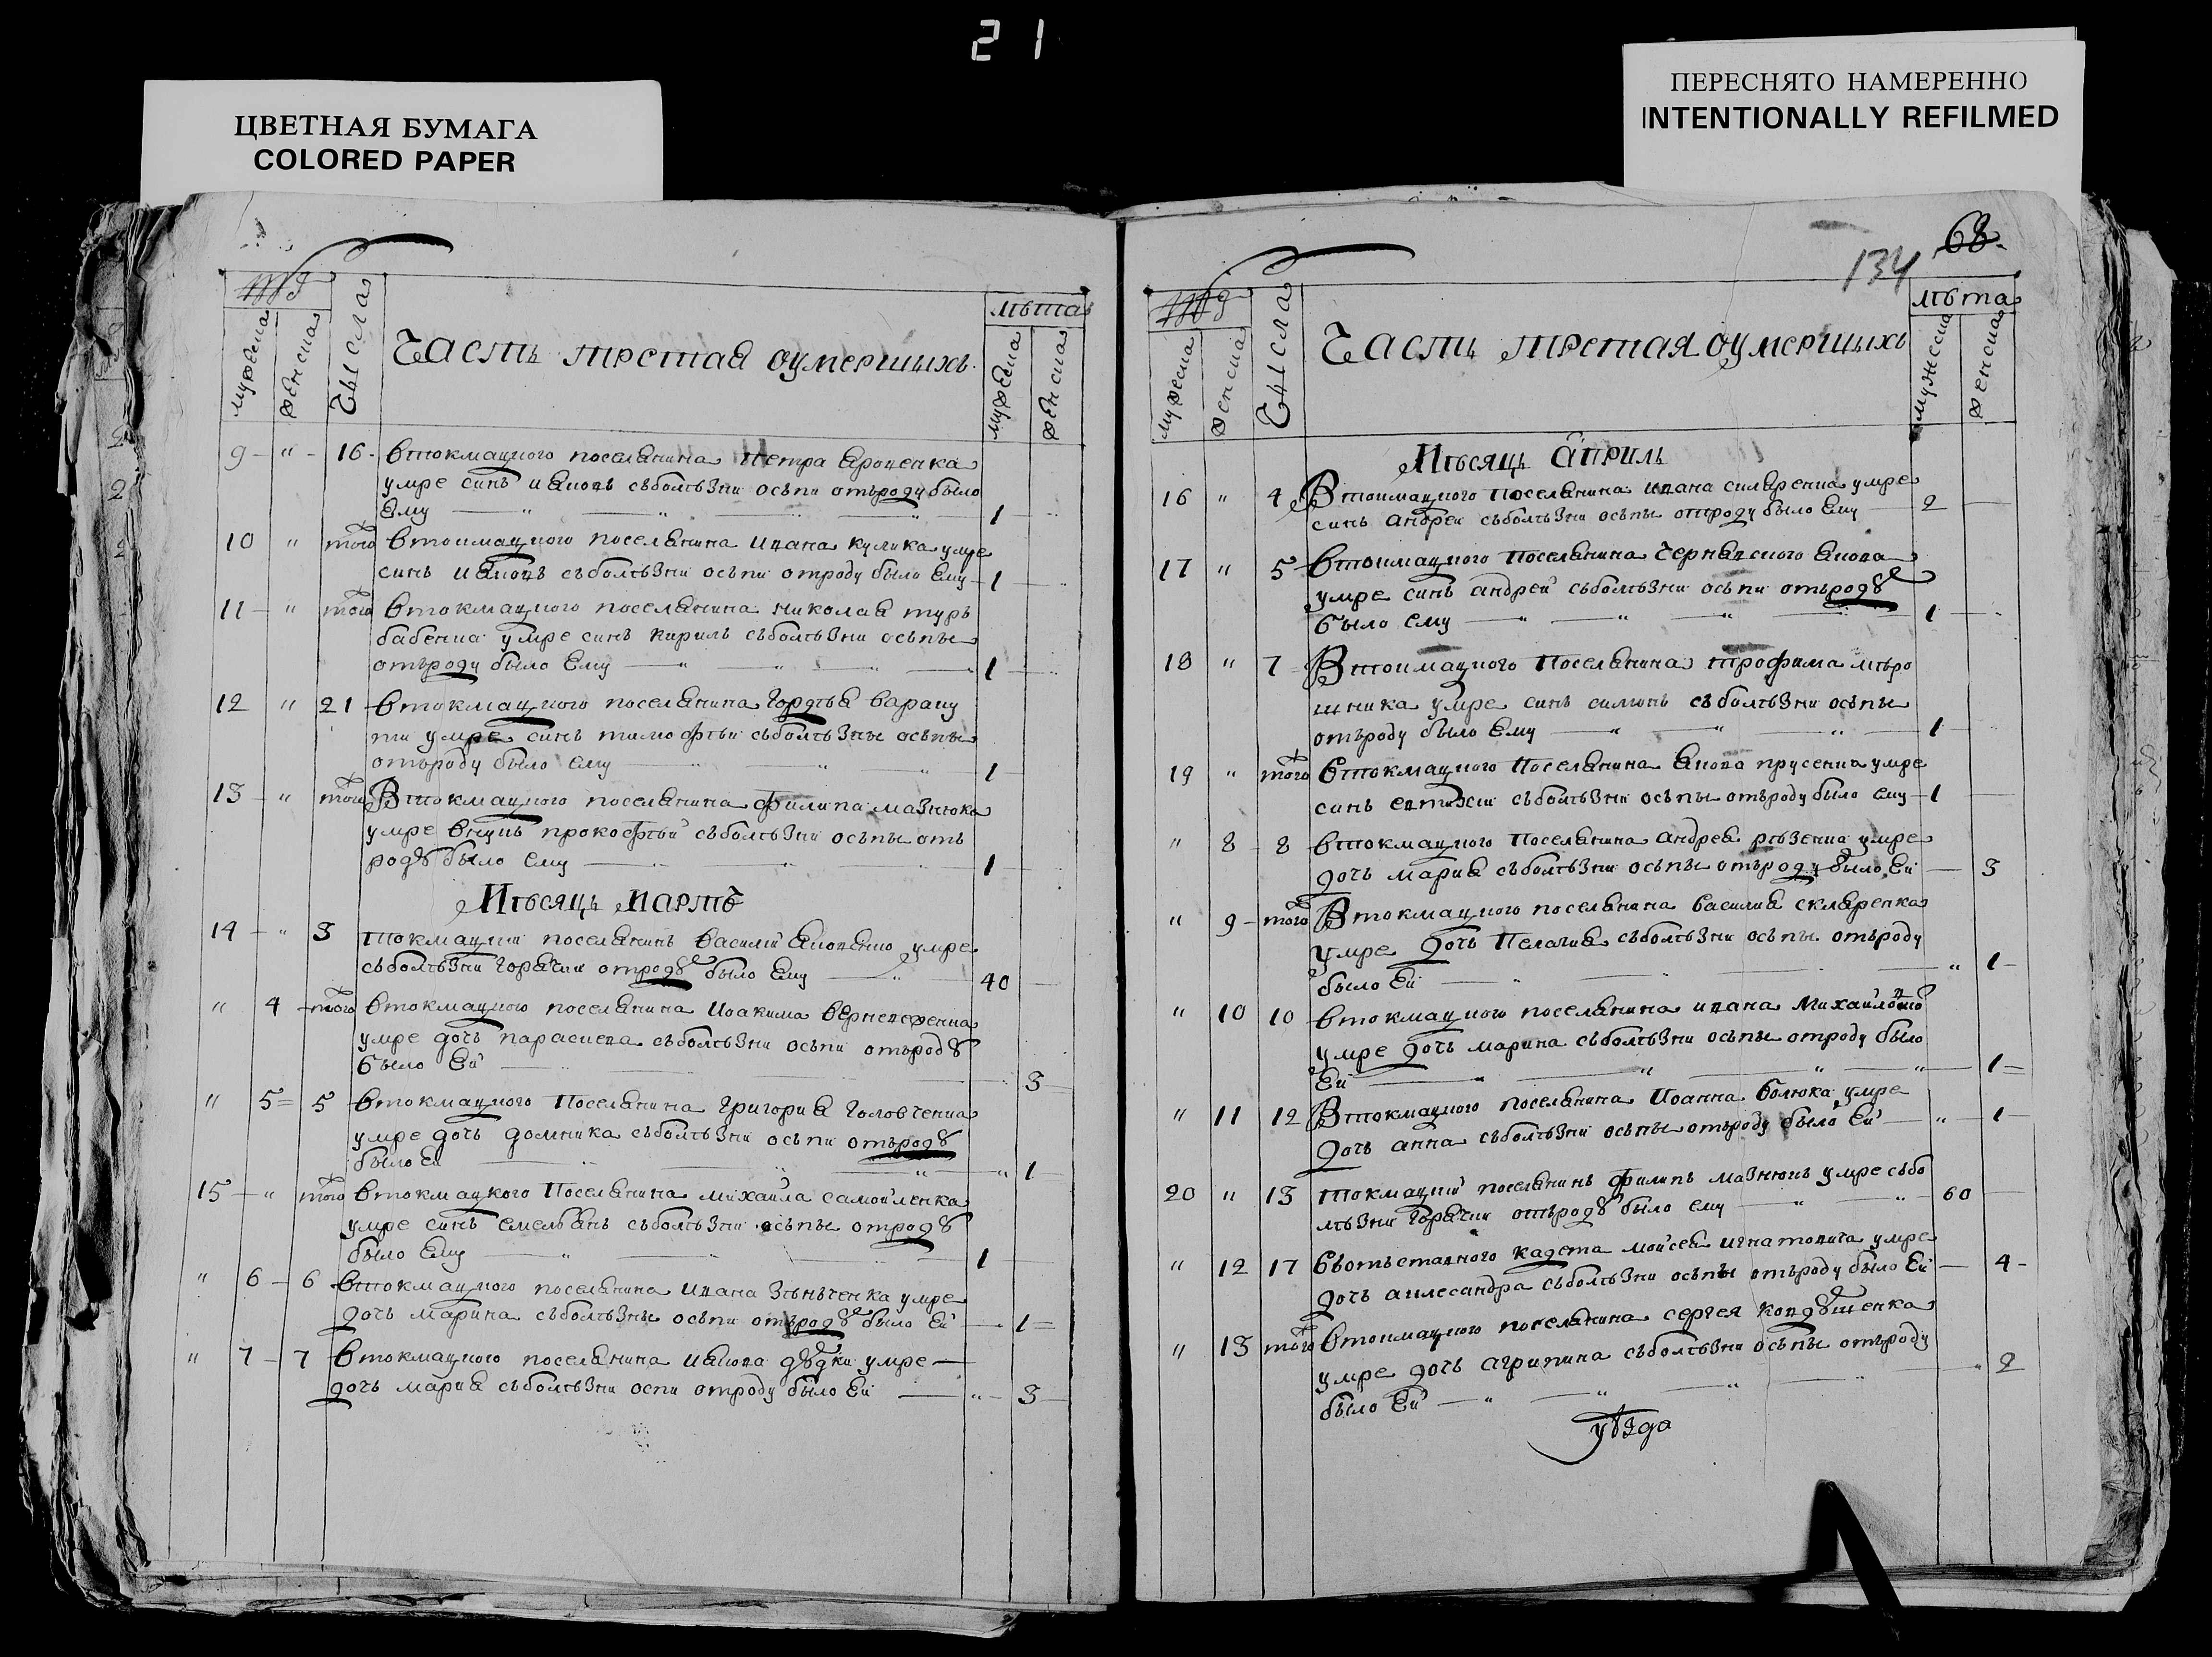 21
ЦВЕТНАЯ БУМАГА
COLORED PAPER
ПЕРЕСНЯТО НАМЕРЕННО
INTENTIONALLY REFILMED
Числа
Часть третая оумершихъ
лѣта
мужеска
женска
мужеска
женска
9 " 16 Втокмацкого поселянина Петра Яроценка
умре синъ Ияковъ съболѣзни осьпи отъроду было
Ему 1
10 " того Втокмацкого поселянина Ивана кулика умре
синъ Ияковъ съболѣзни осьпи отроду было Ему 1
11 " того Втокмацкого поселянина николая турь
бабенка умре синъ кирилъ съболѣзни осьпы
отъроду было Ему 1
12 " 21 Втокмацкого поселянина Гордѣя
умре синъ тимофѣй съболѣзны осьпы
отъроду было ему 1
13 " того Втокмацкого поселянина филипа мазнюка
умре внукъ прокофѣй съболѣзни осьпы отъ
родꙋ было ему 1
Мѣсяцъ Мартъ
14 " 3 Токмацкий поселянинъ Василий Яковенко умре
съболѣзни горячки отродꙋ было Ему 40
" 4 того Втокмацкого поселянина Иоакима
умре дочь параскева съболѣзни осьпи отъродꙋ
было Ей 3
" 5 5 Втокмацкого Поселянина григория Головченка
умре дочь домника съболѣзни осьпи отъродꙋ
было Ей " 1
15 " того Втокмацкого Поселянина михаила самойленка
умре синъ емельянъ съболѣзни осьпы отродꙋ
было Ему 1
" 6 6 Втокмацкого поселянина Ивана зѣньченка умре
дочь марина съболѣзны осьпи отъродꙋ было Ей 1
" 7 7 Втокмацкого поселянина Иякова дꙋдки умре
дочь мария съболѣзни оспи отроду было Ей " 3
68
134
Числа
Часть третая оумершихъ
лѣта
мужеска
женска
мужеска
женска
Мѣсяцъ Априль
16 " 4 Втокмацкого Поселянина Ивана скляренка умре
синъ андрей съболѣзни осьпы отроду было Ему 2
17 " 5 Втокмацкого Поселянина Чернявского Якова
умре синъ андрей съболѣзни осьпи отъродꙋ
было ему 1
18 " 7 Втокмацкого Поселянина трофима мѣро
шника умре синъ симонъ съболѣзни осьпы
отъроду было Ему 1
19 " того Втокмацкого Поселянина Якова прусенка умре
синъ евтихий съболѣзни осьпы отъроду было ему 1
" 8 8 Втокмацкого Поселянина андрея рѣзенка умре
дочь мария съболѣзни осьпы отъроду было Ей 3
" 9 того Втокмацкого поселянина василия скляренка
умре дочь Пелагия съболѣзни осьпы отъроду
было Ей " 1
" 10 10 Втокмацкого поселянина ивана
умре дочь марина съболѣзни осьпы отроду было
Ей 1
" 11 12 Втокмацкого поселянина Иоанна болюка умре
дочь анна съболѣзни осьпы отъроду было Ей " 1
20 " 13 Токмацкий поселянинъ филипъ мазнюкъ умре събо
лѣзни горячки отъродꙋ было ему 60
" 12 17 Вотъставного кадета мойсея игнатовича умре
дочь александра съболѣзни осьпы отъроду было Ей 4
" 13 того Втокмацкого поселянина сергея кондꙋшенка
умре дочь агрипина съболѣзни осьпы отъроду
было Ей " 2
уѣзда